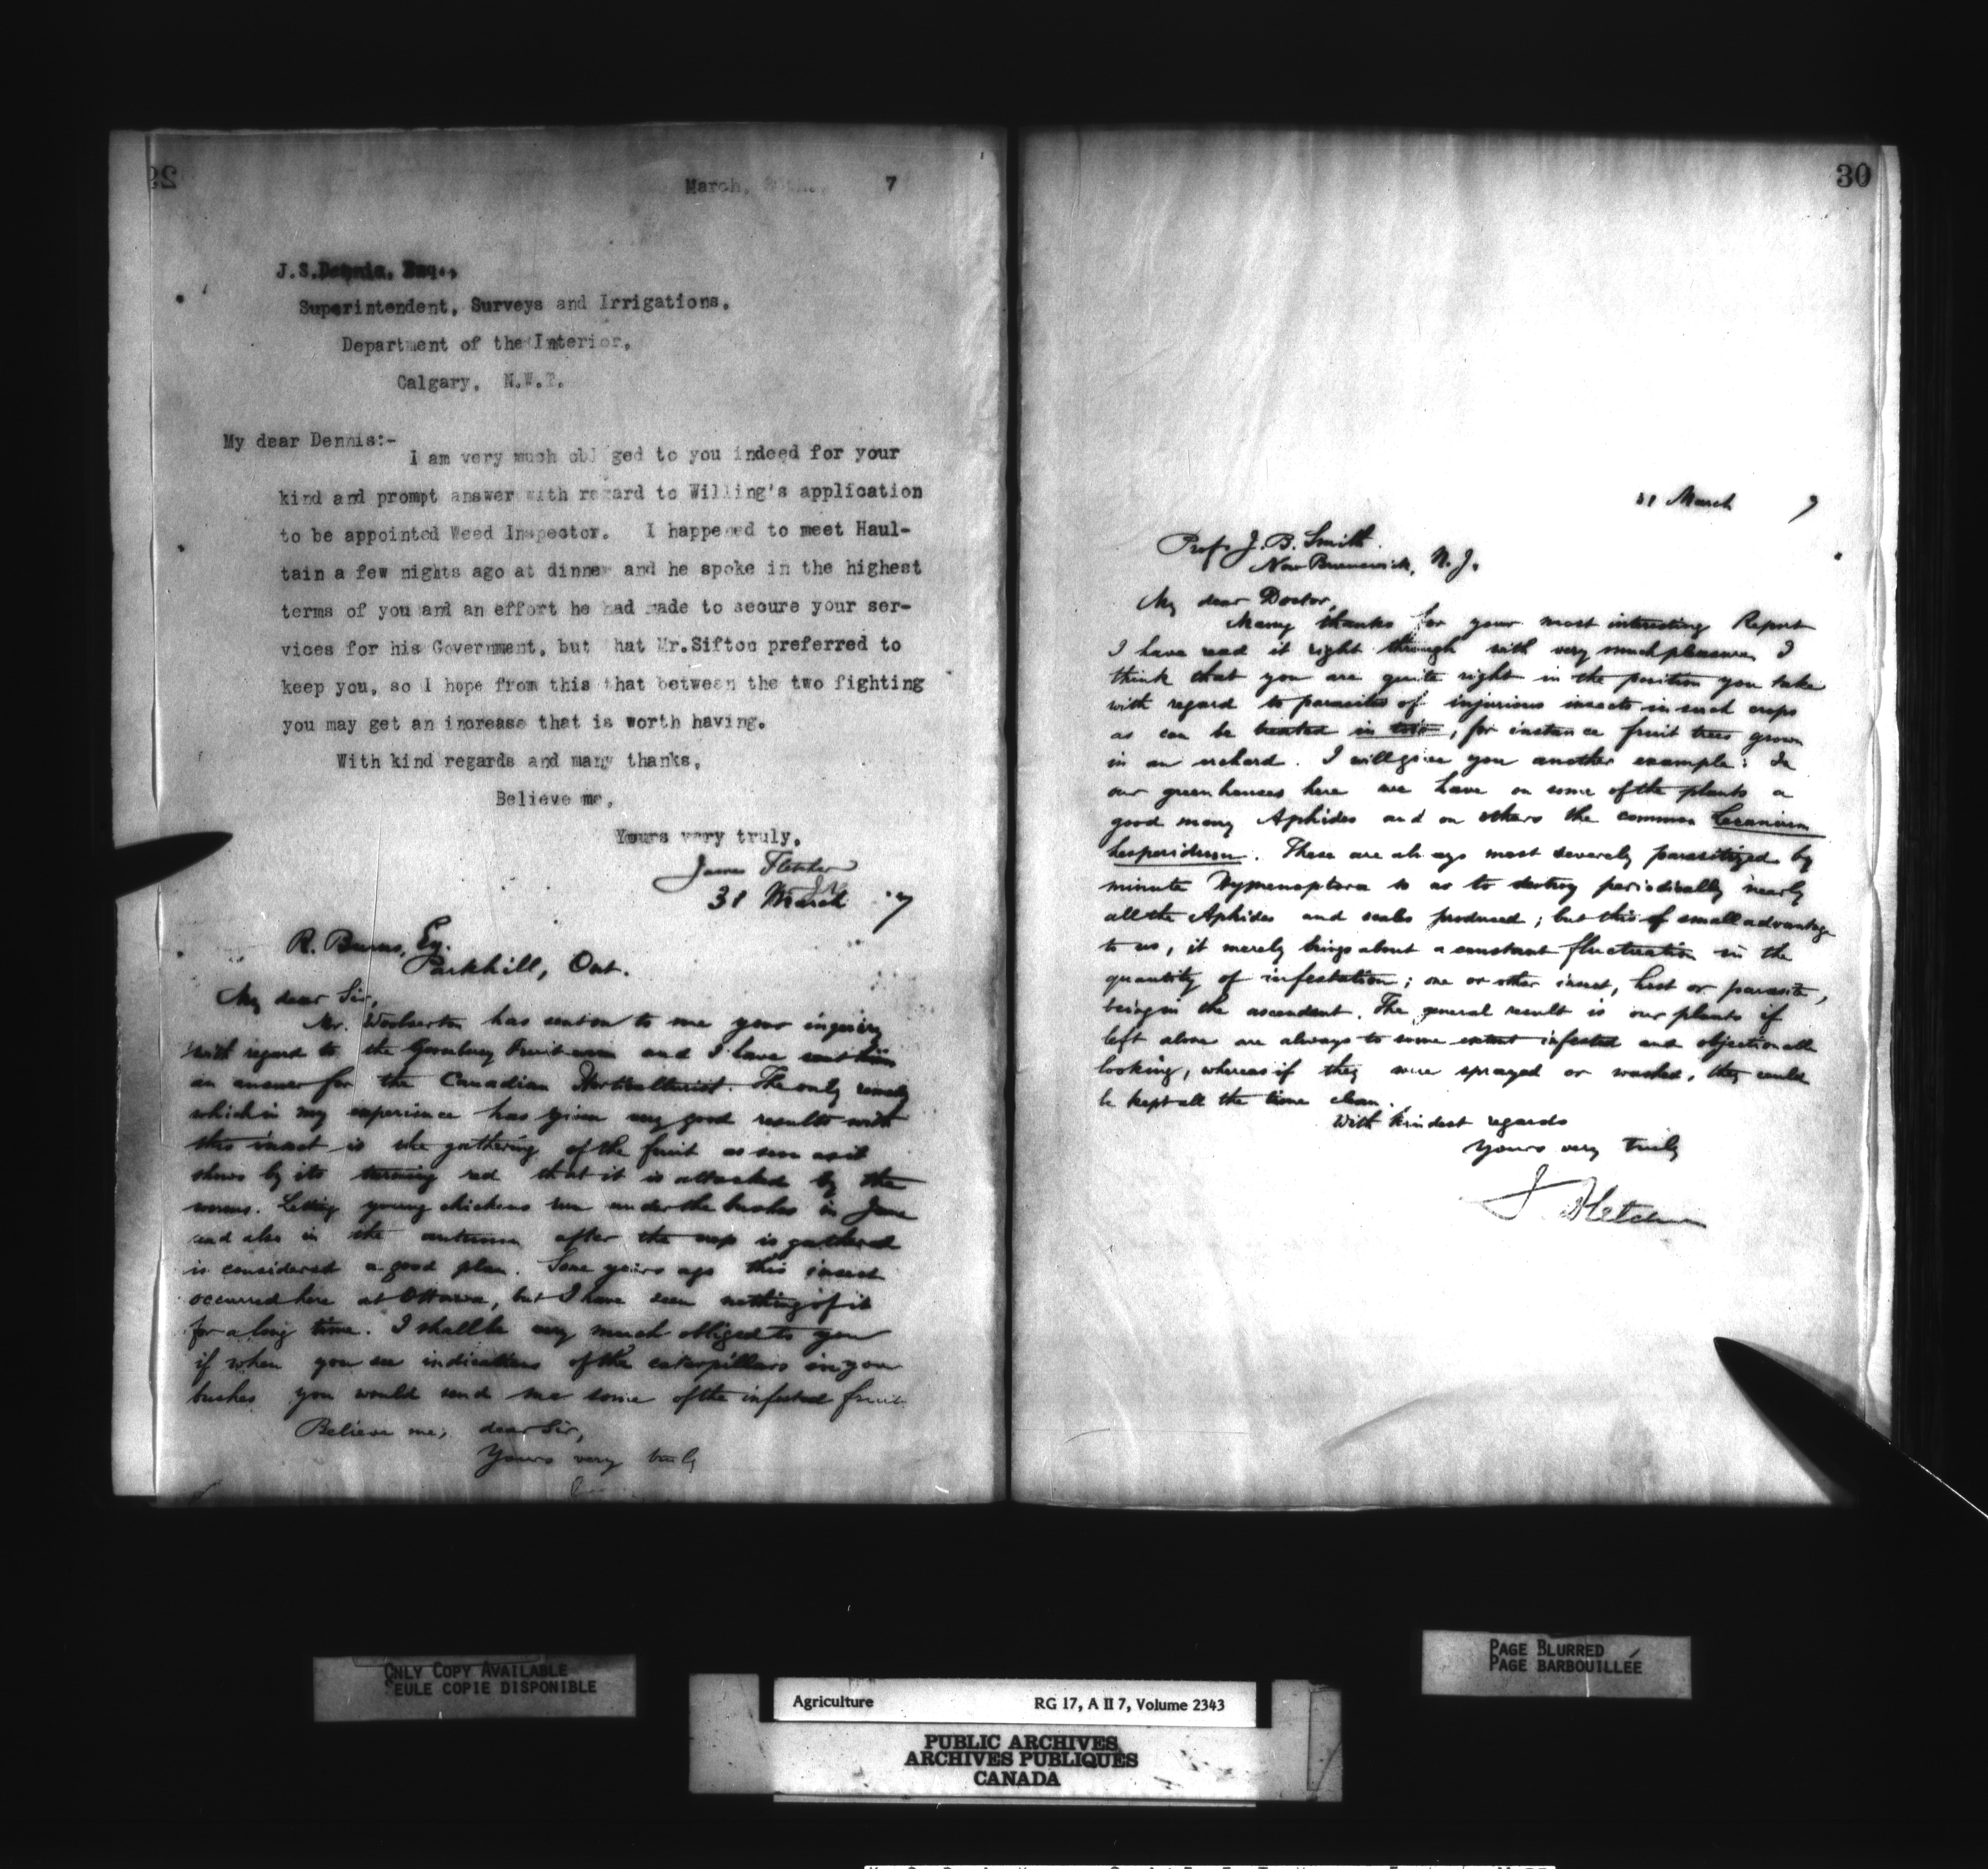 29
March, 7
J.S.Dennis, Esq.,
Superintendent, Surveys and Irrigations,
Department of the Interior,
Calgary, N.W.T.
My dear Dennis:-
I am very much obliged to you indeed for your
kind and prompt answer with regard to Willing's application
to be appointed Weed Inspector. I happened to meet Haul-
tain a few nights ago at dinner and he spoke in the highest
terms of you and an effort he had made to secure your ser-
vices for his Government, but that Mr.Sifton preferred to
keep you, so I hope from this that between the two fighting
you may get an increase that is worth having.
With kind regards and many thanks,
Believe me,
Yours very truly,
James Fletcher
31 March 7
R. Burns, Esq.
Parkhill, Ont.
My dear Sir,
Mr. Woolverton has sent on to me your inquiry
with regard to the Gooseberry Fruit-worm and I have sent him
an answer for the Canadian Horticulturist. The only remedy
which in my experience has given very good results with
this insect is the gathering of the fruit as soon as it
shows by its turning red that it is attacked by the
worms. Letting young chickens run under the bushes in June
and also in the autumn after the crop is gathered
is considered a good plan. Some years ago this insect
occurred here at Ottawa, but I have seen nothing of it
for a long time. I shall be very much obliged to you
if when you see indications of the caterpillars on your
bushes you would send me some of the infested fruit
Believe me, dear Sir,
Yours very truly
30
31 March 7
Prof. J. B. Smith.
New Brunswick, N. J.
My dear Doctor,
Many thanks for your most interesting Report
I have read it right through with very much pleasure. I
think that you are quite right in the position you take
with regard to parasites of injurious insects in such crops
as can be treated in , for instance fruit trees grown
in an orchard. I will give you another example: In
our greenhouses here we have on some of the plants a
good many Aphides and on others the common Lecanium
hesperidum. These are always most severely parasitized by
minute Hymenoptera so as to destroy periodically nearly
all the Aphides and scales produced; but this of small advantage
to us, it merely brings about a constant fluctuation in the
quantity of infestation; one or other insect, host or parasite,
being in the ascendent. The general result is our plants if
left alone are always to some extent infested and objectionable
looking, whereas if they were sprayed or washed, they could
be kept all the time clean.
With kindest regards
Yours very truly
J. Fletcher
ONLY COPY AVAILABLE
SEULE COPIE DISPONIBLE
PAGE BLURRED
PAGE BARBOUILLÉE
Agriculture RG 17, A II 7, Volume 2343
PUBLIC ARCHIVES
ARCHIVES PUBLIQUES
CANADA